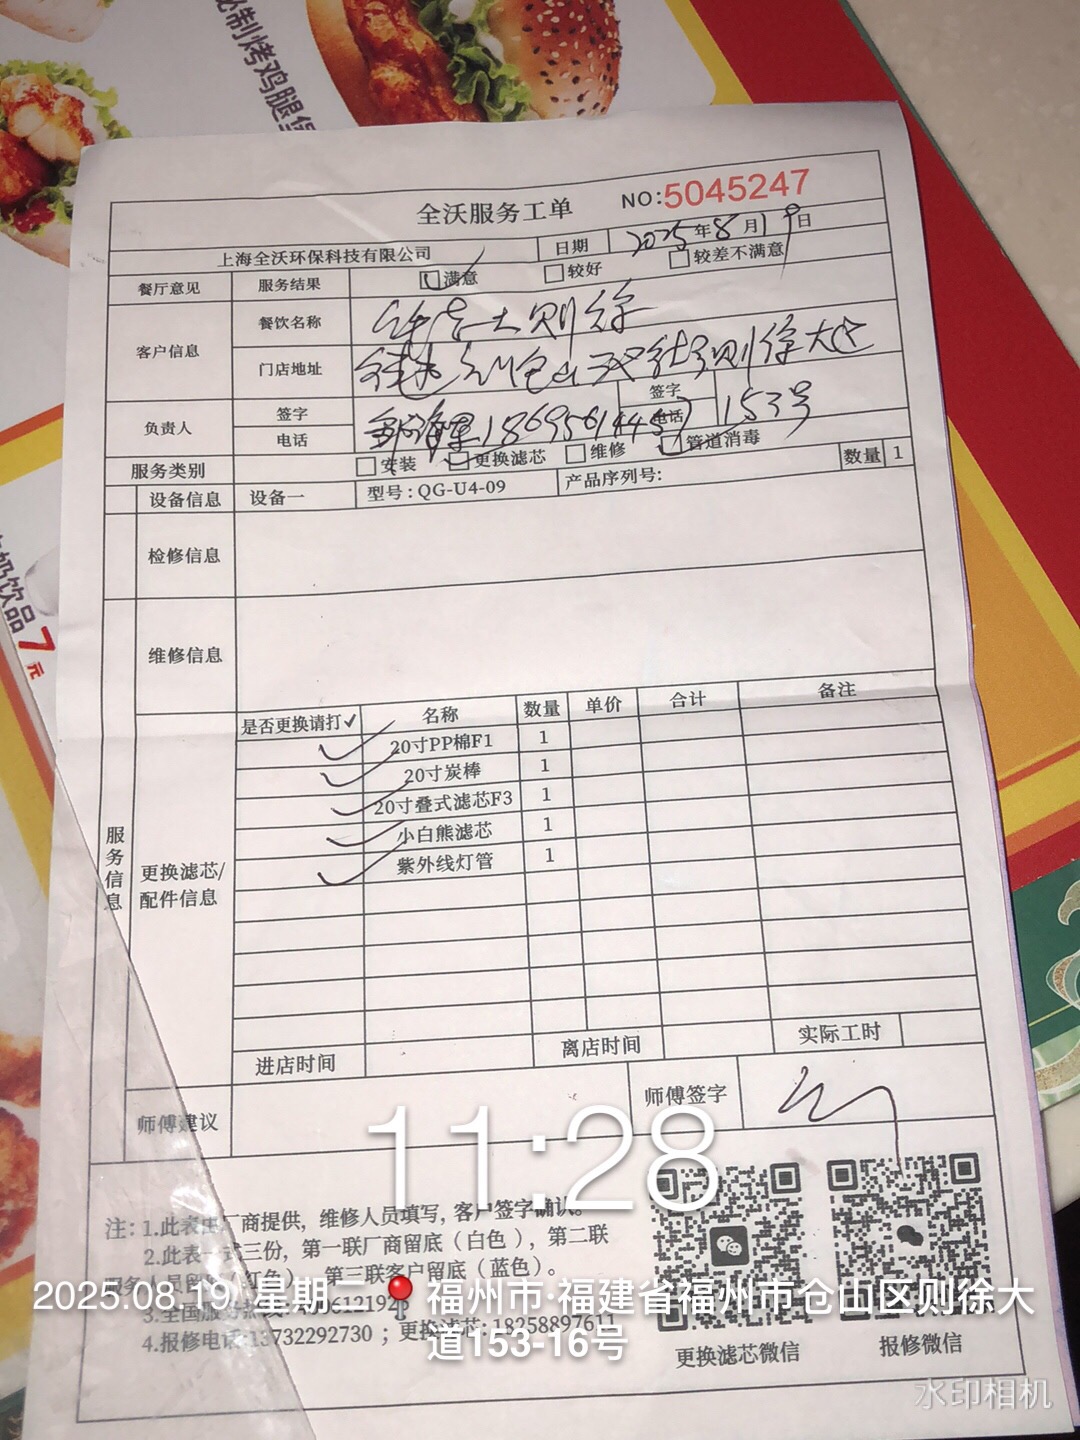 秘制烤鸡腿堡
饮品7元
全沃服务工单 NO:5045247
上海全沃环保科技有限公司 日期 2025年8月19日
餐厅意见 服务结果 满意 较好 较差不满意
客户信息 餐饮名称 则徐
门店地址 仓山 则徐大道
153号
负责人 签字 签字
电话 电话
服务类别 安装 更换滤芯 维修 管道消毒 数量 1
设备信息 设备一 型号:QG-U4-09 产品序列号:
检修信息
维修信息
服务信息
更换滤芯/配件信息
是否更换请打✓ 名称 数量 单价 合计 备注
✓ 20寸PP棉F1 1
✓ 20寸炭棒 1
✓ 20寸叠式滤芯F3 1
✓ 小白熊滤芯 1
✓ 紫外线灯管 1
进店时间 离店时间 实际工时
师傅建议 师傅签字
11:28
注: 1.此表由厂商提供，维修人员填写，客户签字确认。
2.此表一式三份，第一联厂商留底（白色），第二联
第三联客户留底（蓝色）。
3.全国服务热线:
4.报修电话:13732292730；更换滤芯:18258897611
更换滤芯微信 报修微信
2025.08.19 星期二 福州市·福建省福州市仓山区则徐大
道153-16号
水印相机